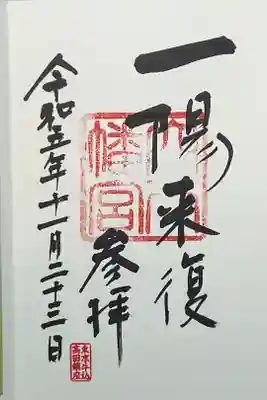 一陽来復
穴八
幡宮
参拝
令和五年十一月二十三日
東京牛込
高田鎮座